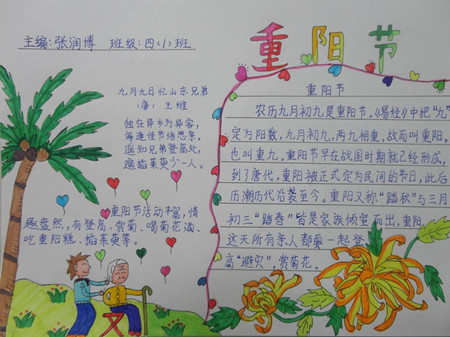 主编:张润博 班级:四(1)班
重阳节
九月九日忆山东兄弟
(唐) 王维
独在异乡为异客,
每逢佳节倍思亲。
遥知兄弟登高处,
遍插茱萸少一人。
重阳节活动丰富,情
趣盎然,有登高、赏菊、喝菊花酒、
吃重阳糕、插茱萸等。
重阳节
农历九月初九是重阳节。《易经》中把“九”
定为阳数,九月初九,两九相重,故而叫重阳,
也叫重九。重阳节早在战国时期就已经形成,
到了唐代,重阳被正式定为民间的节日,此后
历朝历代沿袭至今。重阳又称“踏秋”与三月
初三“踏春”皆是家族倾室而出,重阳
这天所有亲人都要一起登
高“避灾”赏菊花。